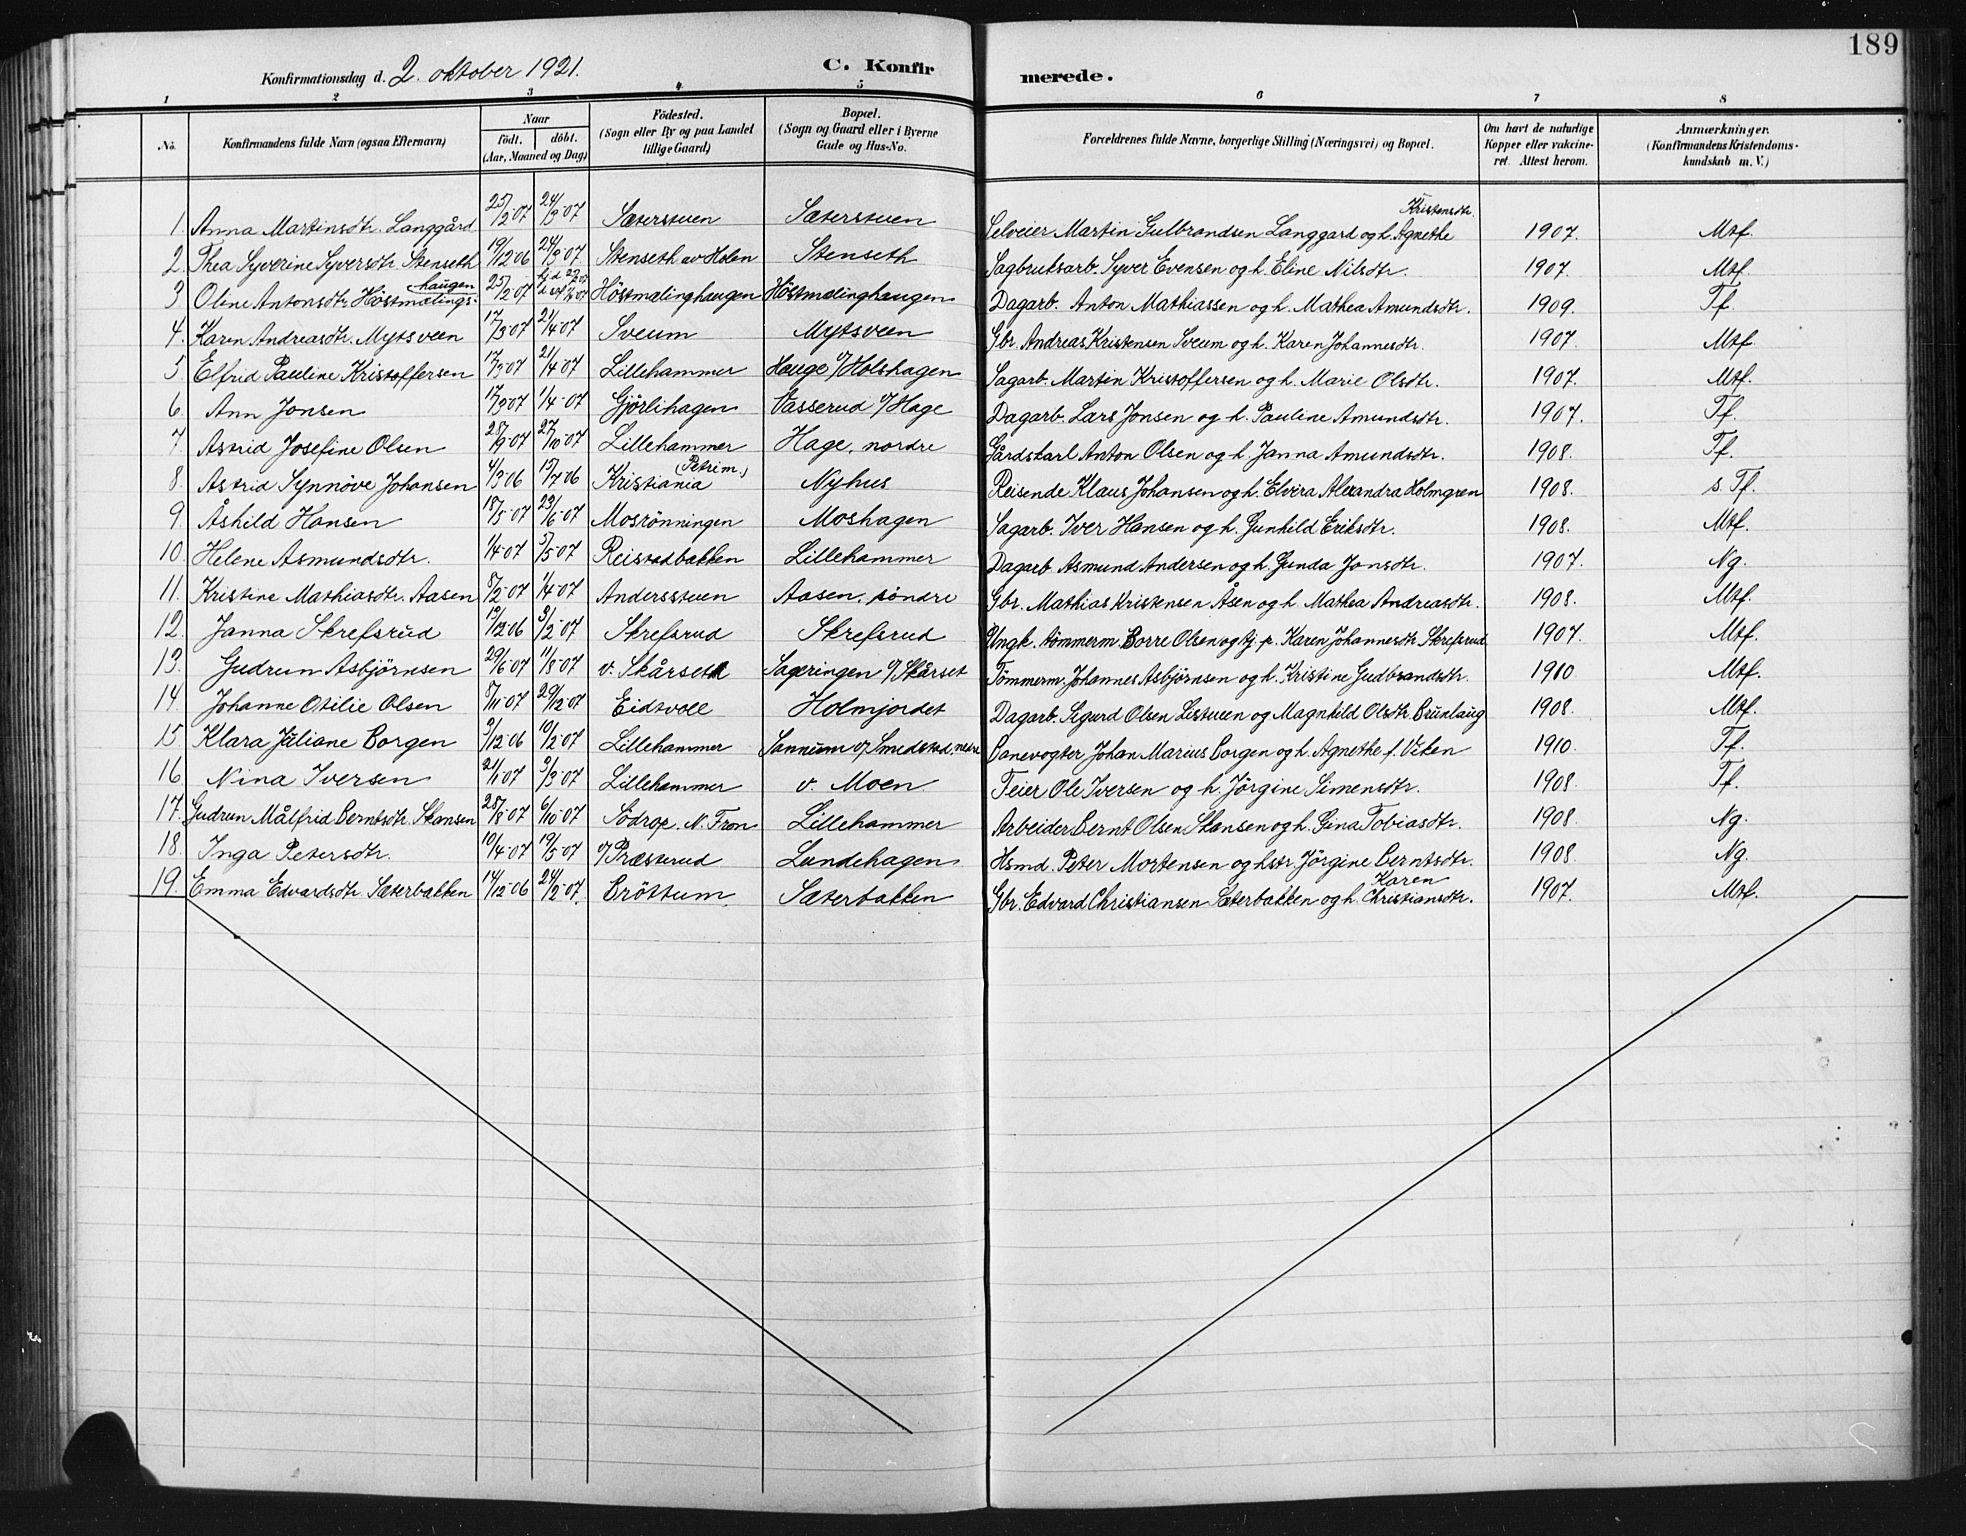 189
Konfirmationsdag d. 2. oktober 1921. C. Konfirmerede.
1 2 3 4 5 6 7 8
No. Konfirmandens fulde Navn (ogsaa Efternavn) Naar født. døbt. (Aar, Maaned og Dag) Fødested. (Sogn eller By og paa Landet tillige Gaard) Bopæl. (Sogn og Gaard eller i Byerne Gade og Hus-No. Forældrenes fulde Navne, borgerlige Stilling (Næringsvei) og Bopæl. Om havt de naturlige Kopper eller vakcineret. Attest herom. Anmærkninger. (Konfirmandens Kristendomskundskab m. V.)
1. Anna Martinsdtr. Langgård 25/2 07 24/3 07 Sæterstuen Sæterstuen Selveier Martin Gulbrandsen Langgard og h. Agnethe Kristensdtr. 1907. Mtf.
2. Thea Syverine Syversdtr. Stenseth 19/12 06 24/3 07 Stenseth av Holen Stenseth Sagbruksarb. Syver Evensen og h. Eline Nilsdtr. 1907. Mtf.
3. Oline Antonsdtr. Höstmælingshaugen 25/2 07 Höstmælinghaugen Höstmælinghaugen Dagarb. Anton Mathiassen og h. Mathea Amundsdtr. 1909. Tf.
4. Karen Andreasdtr. Mytsveen 17/3 07 21/4 07 Sveum Mytsveen Gbr. Andreas Kristensen Sveum og h. Karen Johannesdtr. 1907. Mtf.
5. Elfrid Pauline Kristoffersen 17/3 07 21/4 07 Lillehammer Hauge u/Holshagen Sagarb. Martin Kristoffersen og h. Marie Olsdtr. 1907. Mtf.
6. Ann Jonsen 17/3 07 1/4 07 Gjörlihagen Vasserud u/Hage Dagarb. Lars Jonsen og h. Pauline Amundsdtr. 1907. Tf.
7. Astrid Josefine Olsen 28/9 07 27/10 07 Lillehammer Hage, nordre Gårdskarl Anton Olsen og h. Janna Amundsdtr. 1908. Tf.
8. Astrid Synnöve Johansen 4/3 06 15/7 06 Kristiania (Petri m.) Nyhus Reisende Klaus Johansen og h. Elvira Alexandra Holmgren 1908. s. Tf.
9. Åshild Hansen 18/5 07 23/6 07 Mosrönningen Moshagen Sagarb. Iver Hansen og h. Gunhild Eriksdtr. 1908. Mtf.
10. Helene Asmundsdtr. 1/4 07 5/5 07 Reistadbakken Lillehammer Dagarb. Asmund Andersen og h. Gunda Jonsdtr. 1907. Ng.
11. Kristine Mathiasdtr. Aasen 8/2 07 1/4 07 Andersstuen Aasen, söndre Gbr. Mathias Kristensen Åsen og h. Mathea Andreasdtr. 1908. Mtf.
12. Janna Skrefsrud 12/12 06 3/2 07 Skrefsrud Skrefsrud Ungk. tømmerm Borre Olsen og tj. p. Karen Johannesdtr. Skrefsrud 1907. Mtf.
13. Gudrun Asbjörnsen 29/6 07 11/8 07 v. Skårseth Sageringen u/Skårset Tömmerm. Johannes Asbjørnsen og h. Kristine Gudbrandsdtr. 1910 Mtf.
14. Johanne Otilie Olsen 8/11 07 29/12 07 Eidsvoll Holmjordet Dagarb. Sigurd Olsen Listuen og Magnhild Olsdtr. Brunlaug 1908. Mtf.
15 Klara Juliane Borgen 3/12 06 10/2 07 Lillehammer Sannum u/Smedstad nedre Banevogter Johan Marius Borgen og h. Agnethe f. Viken 1910. Tf.
16 Nina Iversen 21/1 07 3/3 07 Lillehammer v. Moen Feier Ole Iversen og h. Jörgine Simensdtr. 1908. Tf.
17. Gudrun Målfrid Berntsdtr. Skansen 28/8 07 6/10 07 Södrop. N. Fron Lillehammer Arbeider Bernt Olsen Skansen og h. Gina Tobiasdtr. 1908. Ng.
18. Inga Petersdtr. 10/4 07 19/5 07 u/Præsterud Lundehagen Hsmd. Peter Mortensen og hstr. Jörgine Berntsdtr. 1908. Ng.
19. Emma Edvardsdtr. Sæterbakken 14/12 06 24/2 07. Bröttum Sæterbakken Gbr. Edvard Christiansen Sæterbakken og h. Karen Christiansdtr. 1907. Mtf.